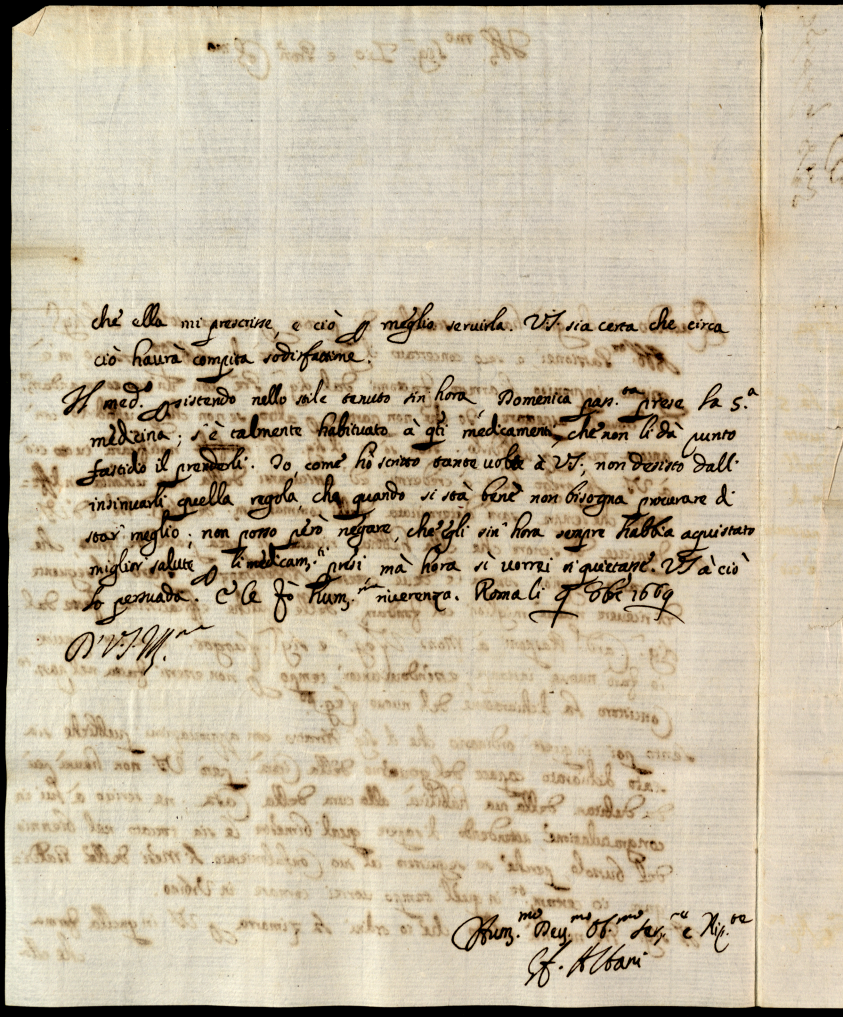 che ella mi prescrisse, e ciò p meglio seruirla. VS. sia certa che circa
ciò haurà compita sodisfattione.
Il med.º psistendo nello stile tenuto sin hora Domenica pass.ta prese la 5.a
medicina; s'è talmente habituato à qti medicamenti, che non li dà punto
fastidio il prenderli. Io, come hò scritto tante uolte à VS, non desisto dall'
insinuarli quella regola, che quando si stà bene non bisogna procurare di
star meglio; non posso però negare, che egli sin' hora sempre habbia aquistato
miglior salute p li medicam.ti presi mà hora sì uorrei si quietasse. VS à ciò
lo persuada. E le fò hum.ma riuerenza. Roma li 9 9bre 1669
D. V.S. Ill.ma
Hum.mo Deu.mo Ob.mo Ser.re e Nip.te
Albani